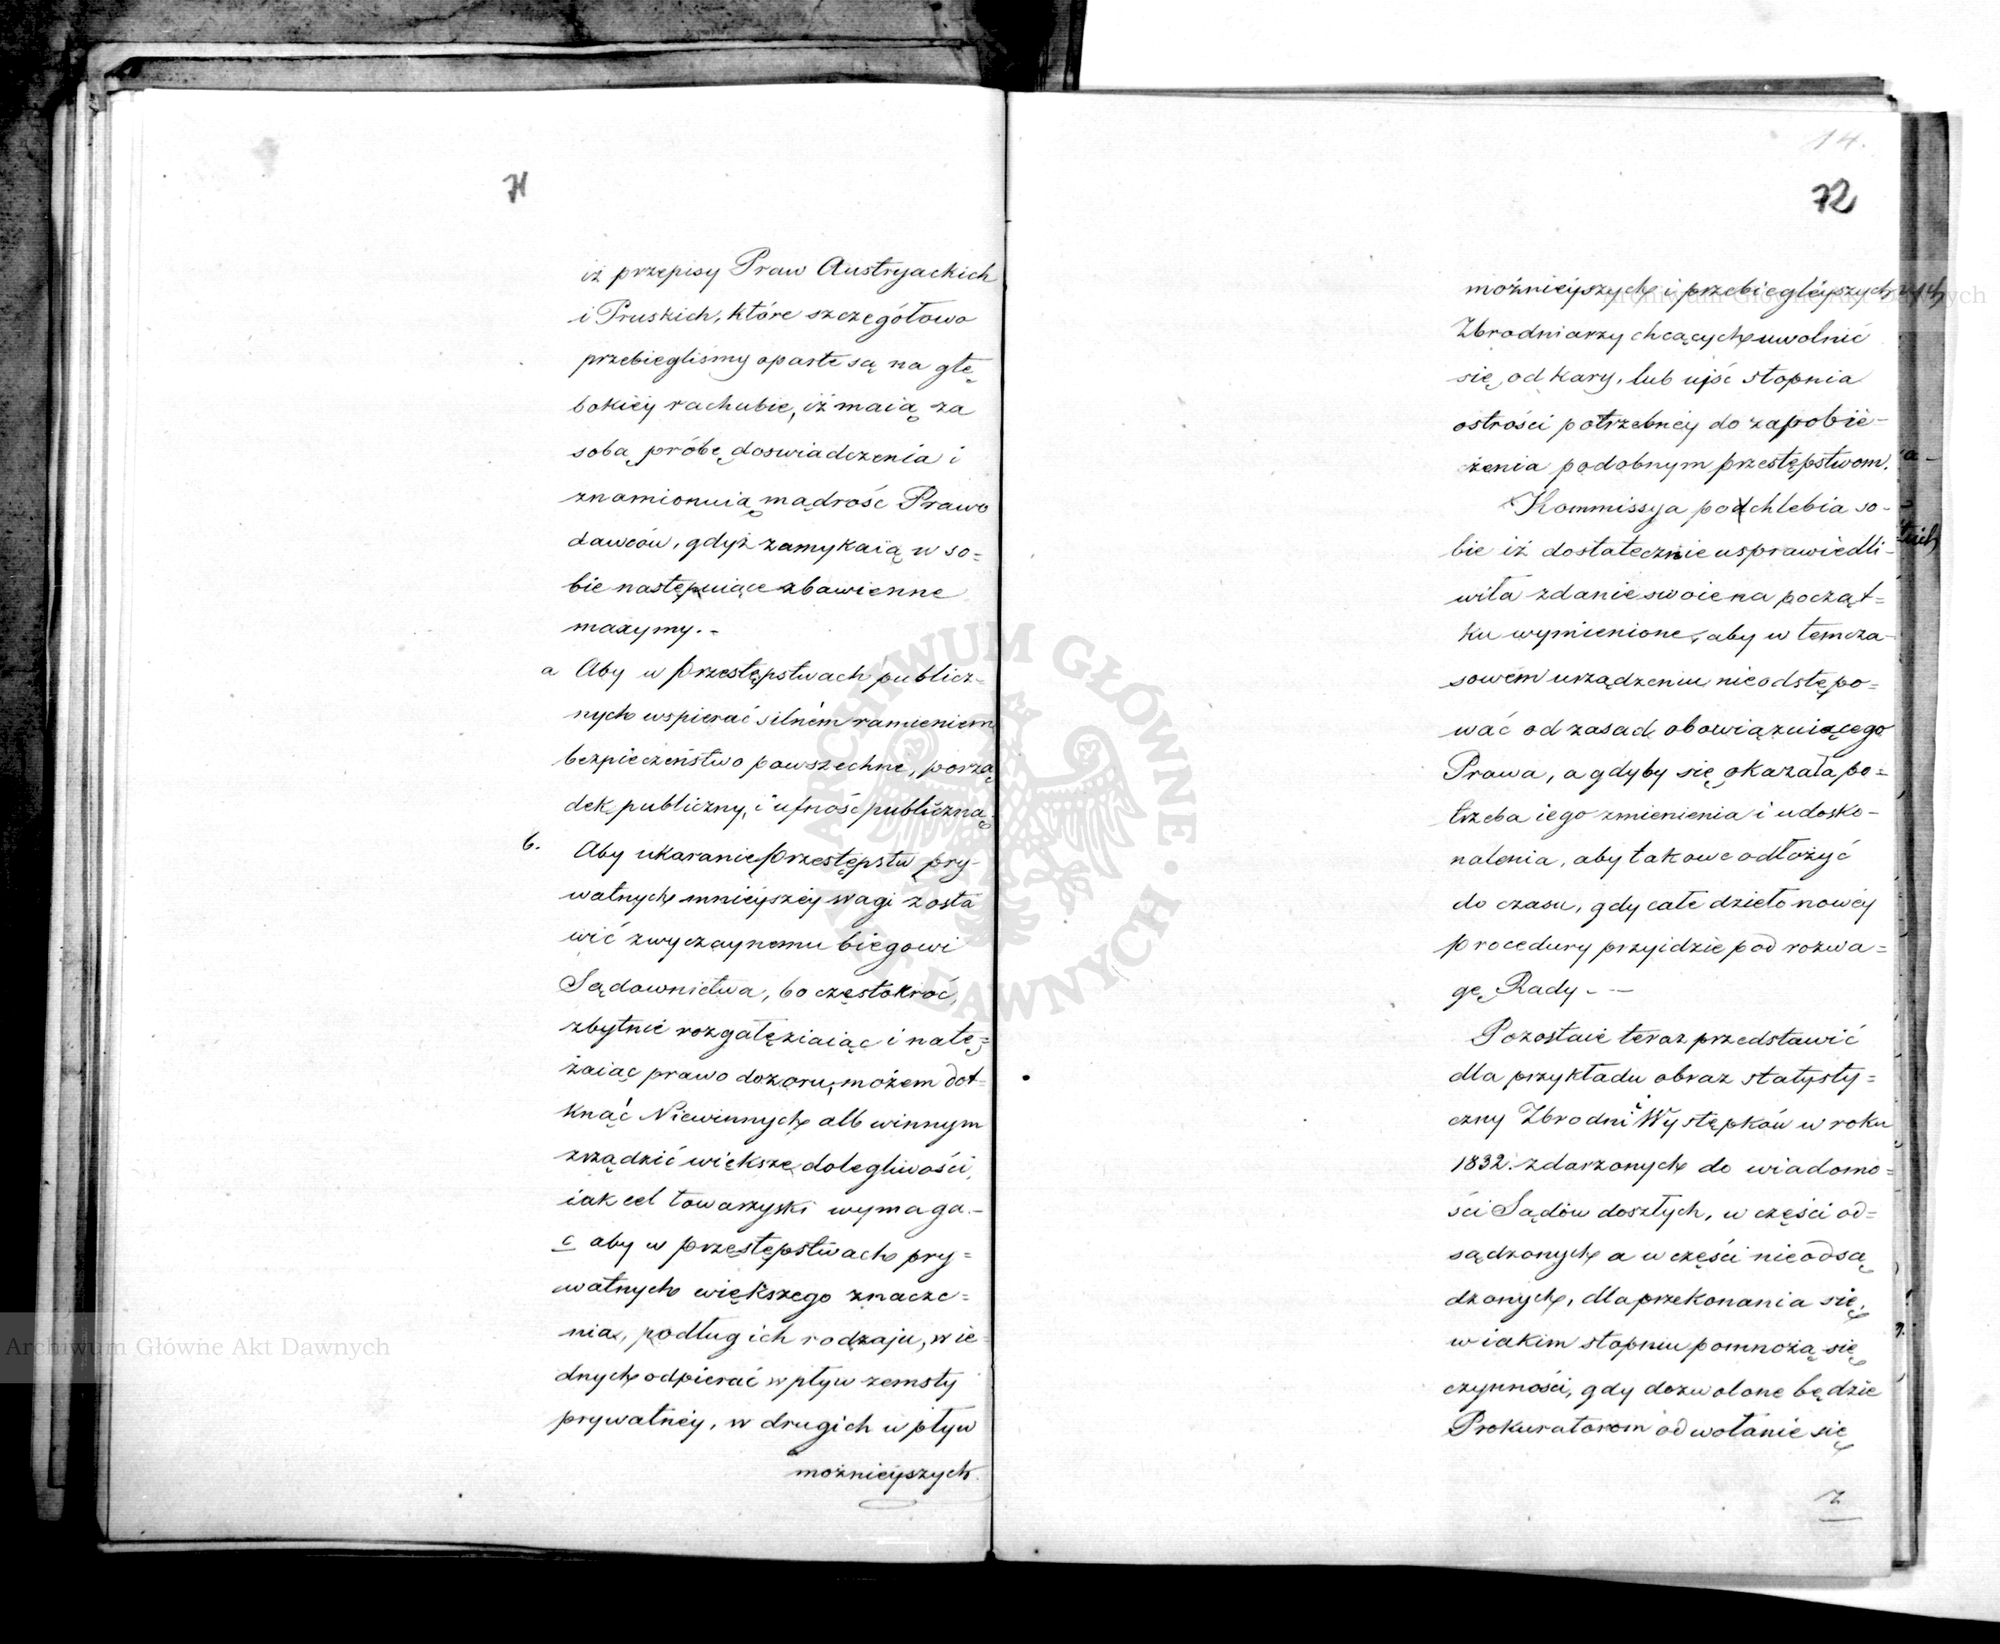 71
iż przepisy Praw Austryackich
i Pruskich, które szczegółowo
przebiegliśmy oparte są na głę
bokiéy rachubie, iż maią za
sobą próbę doswiadczenia i
znamionuią mądrość Prawo
dawców, gdyż zamykaią w so=
bie następuiące zbawienne
maxymy.-
a Aby w przestępstwach publicz=
nych wspierać silném ramieniem
bezpieczeństwo powszechne, porzą
dek publiczny, i ufność publiczną.
b. Aby ukaranie przestępstw pry-
watnych mnieyszéy wagi zosta
wić zwyczaynemu biegowi
Sądownictwa, bo częstokroć,
zbytnie rozgałęziaiąc i natę=
żaiąc prawo dozoru, możem dot=
knąć Niewinnych alb winnym
zrządzić większe dolegliwości,
iak cel towarzyski wymaga.-
c aby w przestępstwach pry=
watnych większego znacze=
nia, podług ich rodzaju, w ie=
dnych odpierać wpływ zemsty
prywatnéy, w drugich wpływ
możnieyszych
14.
72
możnieyszych i przebiegléyszych
Zbrodniarzy chcących uwolnić
się od kary, lub ujść stopnia
ostrości potrzebnéy do zapobie-
żenia podobnym przestępstwom.
Kommissya podchlebia so-
bie iż dostatecznie usprawiedli-
wiła zdanie swoie na począt=
ku wymienione, aby w temcza-
sowém urządzeniu nieodstępo=
wać od zasad obowiązuiącego
Prawa, a gdyby się okazała po=
trzeba iego zmienienia i udosko-
nalenia, aby takowe odłożyć
do czasu, gdy całe dzieło nowéy
procedury przyidzie pod rozwa=
gę Rady. -
Pozostaie teraz przedstawić
dla przykładu obraz statysty=
czny Zbrodni i Występków w roku
1832. zdarzonych do wiadomo=
ści Sądów doszłych, w części od=
sądzonych a w części nieodsą
dzonych, dla przekonania się,
w iakim stopniu pomnożą się
czynności, gdy dozwolone będzie
Prokuratorom odwołanie się
z
Archiwum Główne Akt Dawnych
Archiwum Główne Akt Dawnych
ARCHIWUM GŁÓWNE AKT DAWNYCH · W WARSZAWIE